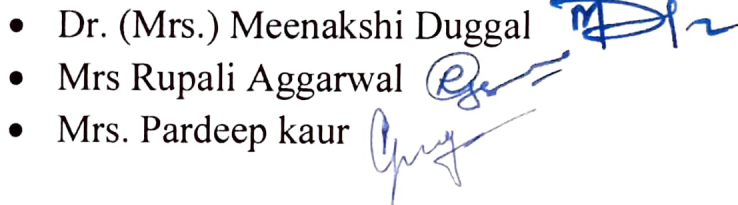 • Dr. (Mrs.) Meenakshi Duggal
• Mrs Rupali Aggarwal
• Mrs. Pardeep kaur